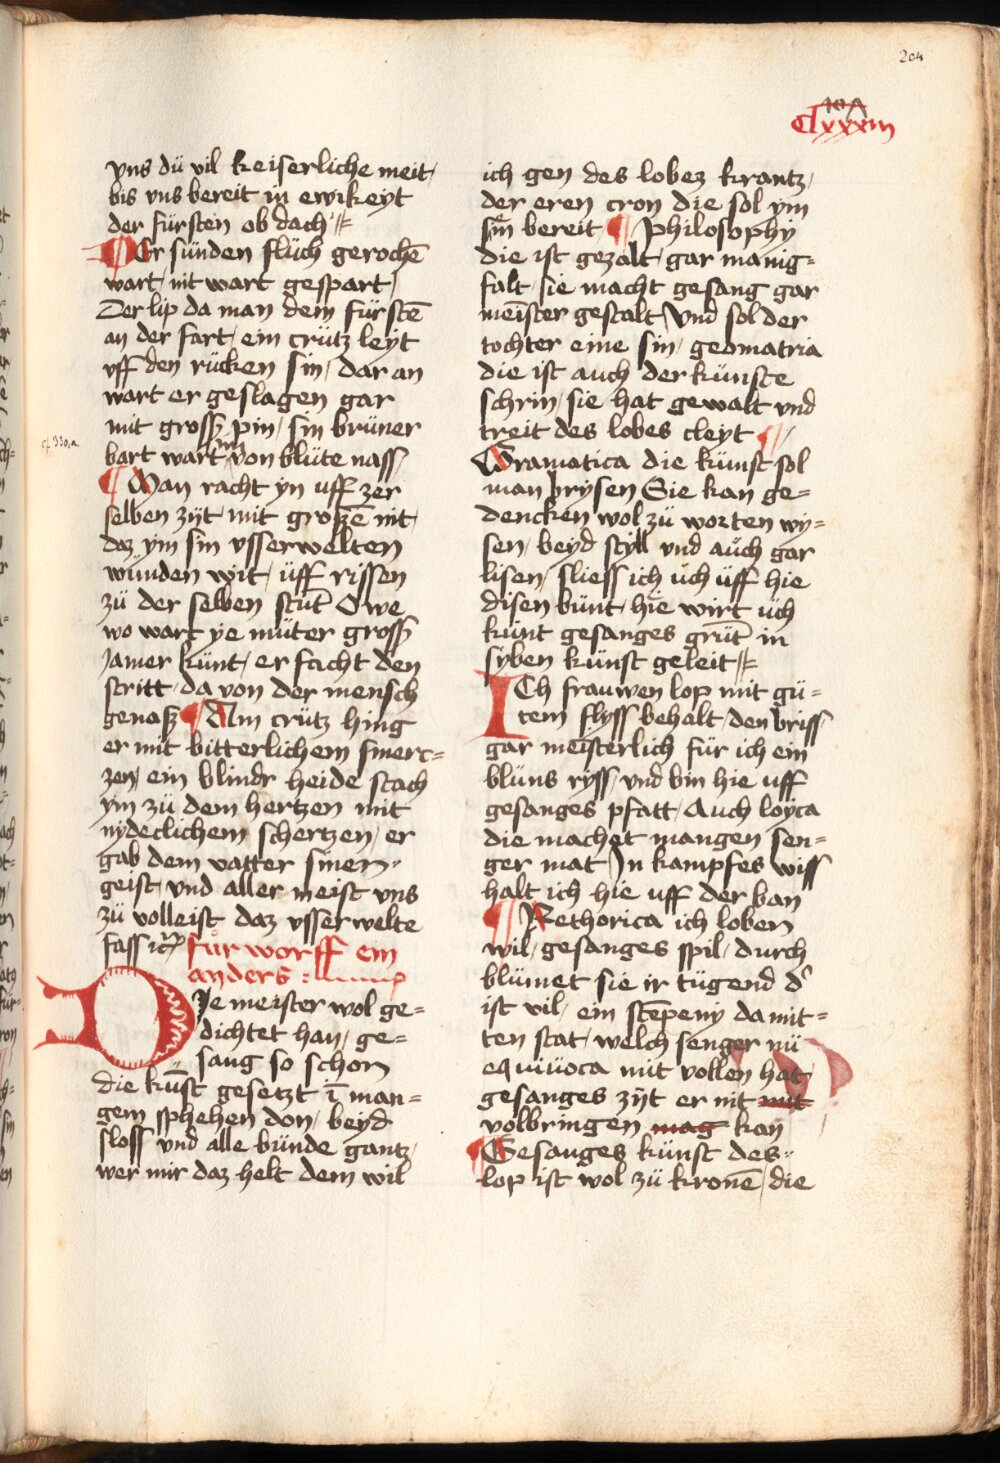 204
Clxxxiiii
vns dü vil keiserliche meit
bis vns bereit in ewikeyt
der fürsten ob dach
Der sünden flüch gerochē
wart nit wart gespart
Der lip da man dem fürstē
an der fart ein crütz leyt
vff den rücken sin dar an
wart er geslagen gar
mit grossz pin sin brüner
cf. 330,a.
bart wart ym von blüte nass
Man racht yn uff zer
selben zyt mit grozē nit
daz ym sin vsserwelten
wunden wit uff rissen
zü der selben stūt Owe
wo wart ye müter grossz
Jamer künt er facht den
stritt da von der mensch
genasz Am crütz hing
er mit bitterlichem smert=
zen ein blindr heide stach
ym zü dem hertzen mit
nydeclichem schertzen er
gab dem vatter sinen
geist vnd aller meist vns
zü volleist daz vsserwelte
fass
für worff ein
anders
Die meister wol ge=
dichtet han ge=
sang so schon
die kūst gesetzt ī man=
gem sphehen don beyd
sloss vnd alle bünde gantz
wer mir daz helt dem wil
ich gen des lobez krantz
der eren cron die sol ym
sin bereit Philosophy
die ist gezalt gar manig=
falt sie macht gesang gar
meister gestalt Vnd sol der
tochter eine sin geomatria
die ist auch der künste
schrin sie hat gewalt vnd
treit des lobes cleyt
Gramatica die künst sol
man prysen Sie kan ge=
dencken wol zü worten wy=
sen beyd styll vnd auch gar
lisen sliess ich üch üff hie
disen bünt hie wirt üch
künt gesanges grūt in
syben künst geleit
ICh frauwen lop mit gü=
tem flyss behalt den briss
gar meisterlich für ich ein
blüns ryss vnd bin hie uff
gesanges pfatt Auch loyca
die machet mangen sen=
ger mat In kampfes wiss
halt ich hie uff der ban
Rethorica ich loben
wil gesanges spil durch
blümet sie ir tügend d'
ist vil ein stēpeny da mit=
ten stat welch senger nü
equiuoca mit vollen hat
gesanges zyt er nit mit
volbringen mag kan
Gesanges künst des
lop ist wol zü kronē die